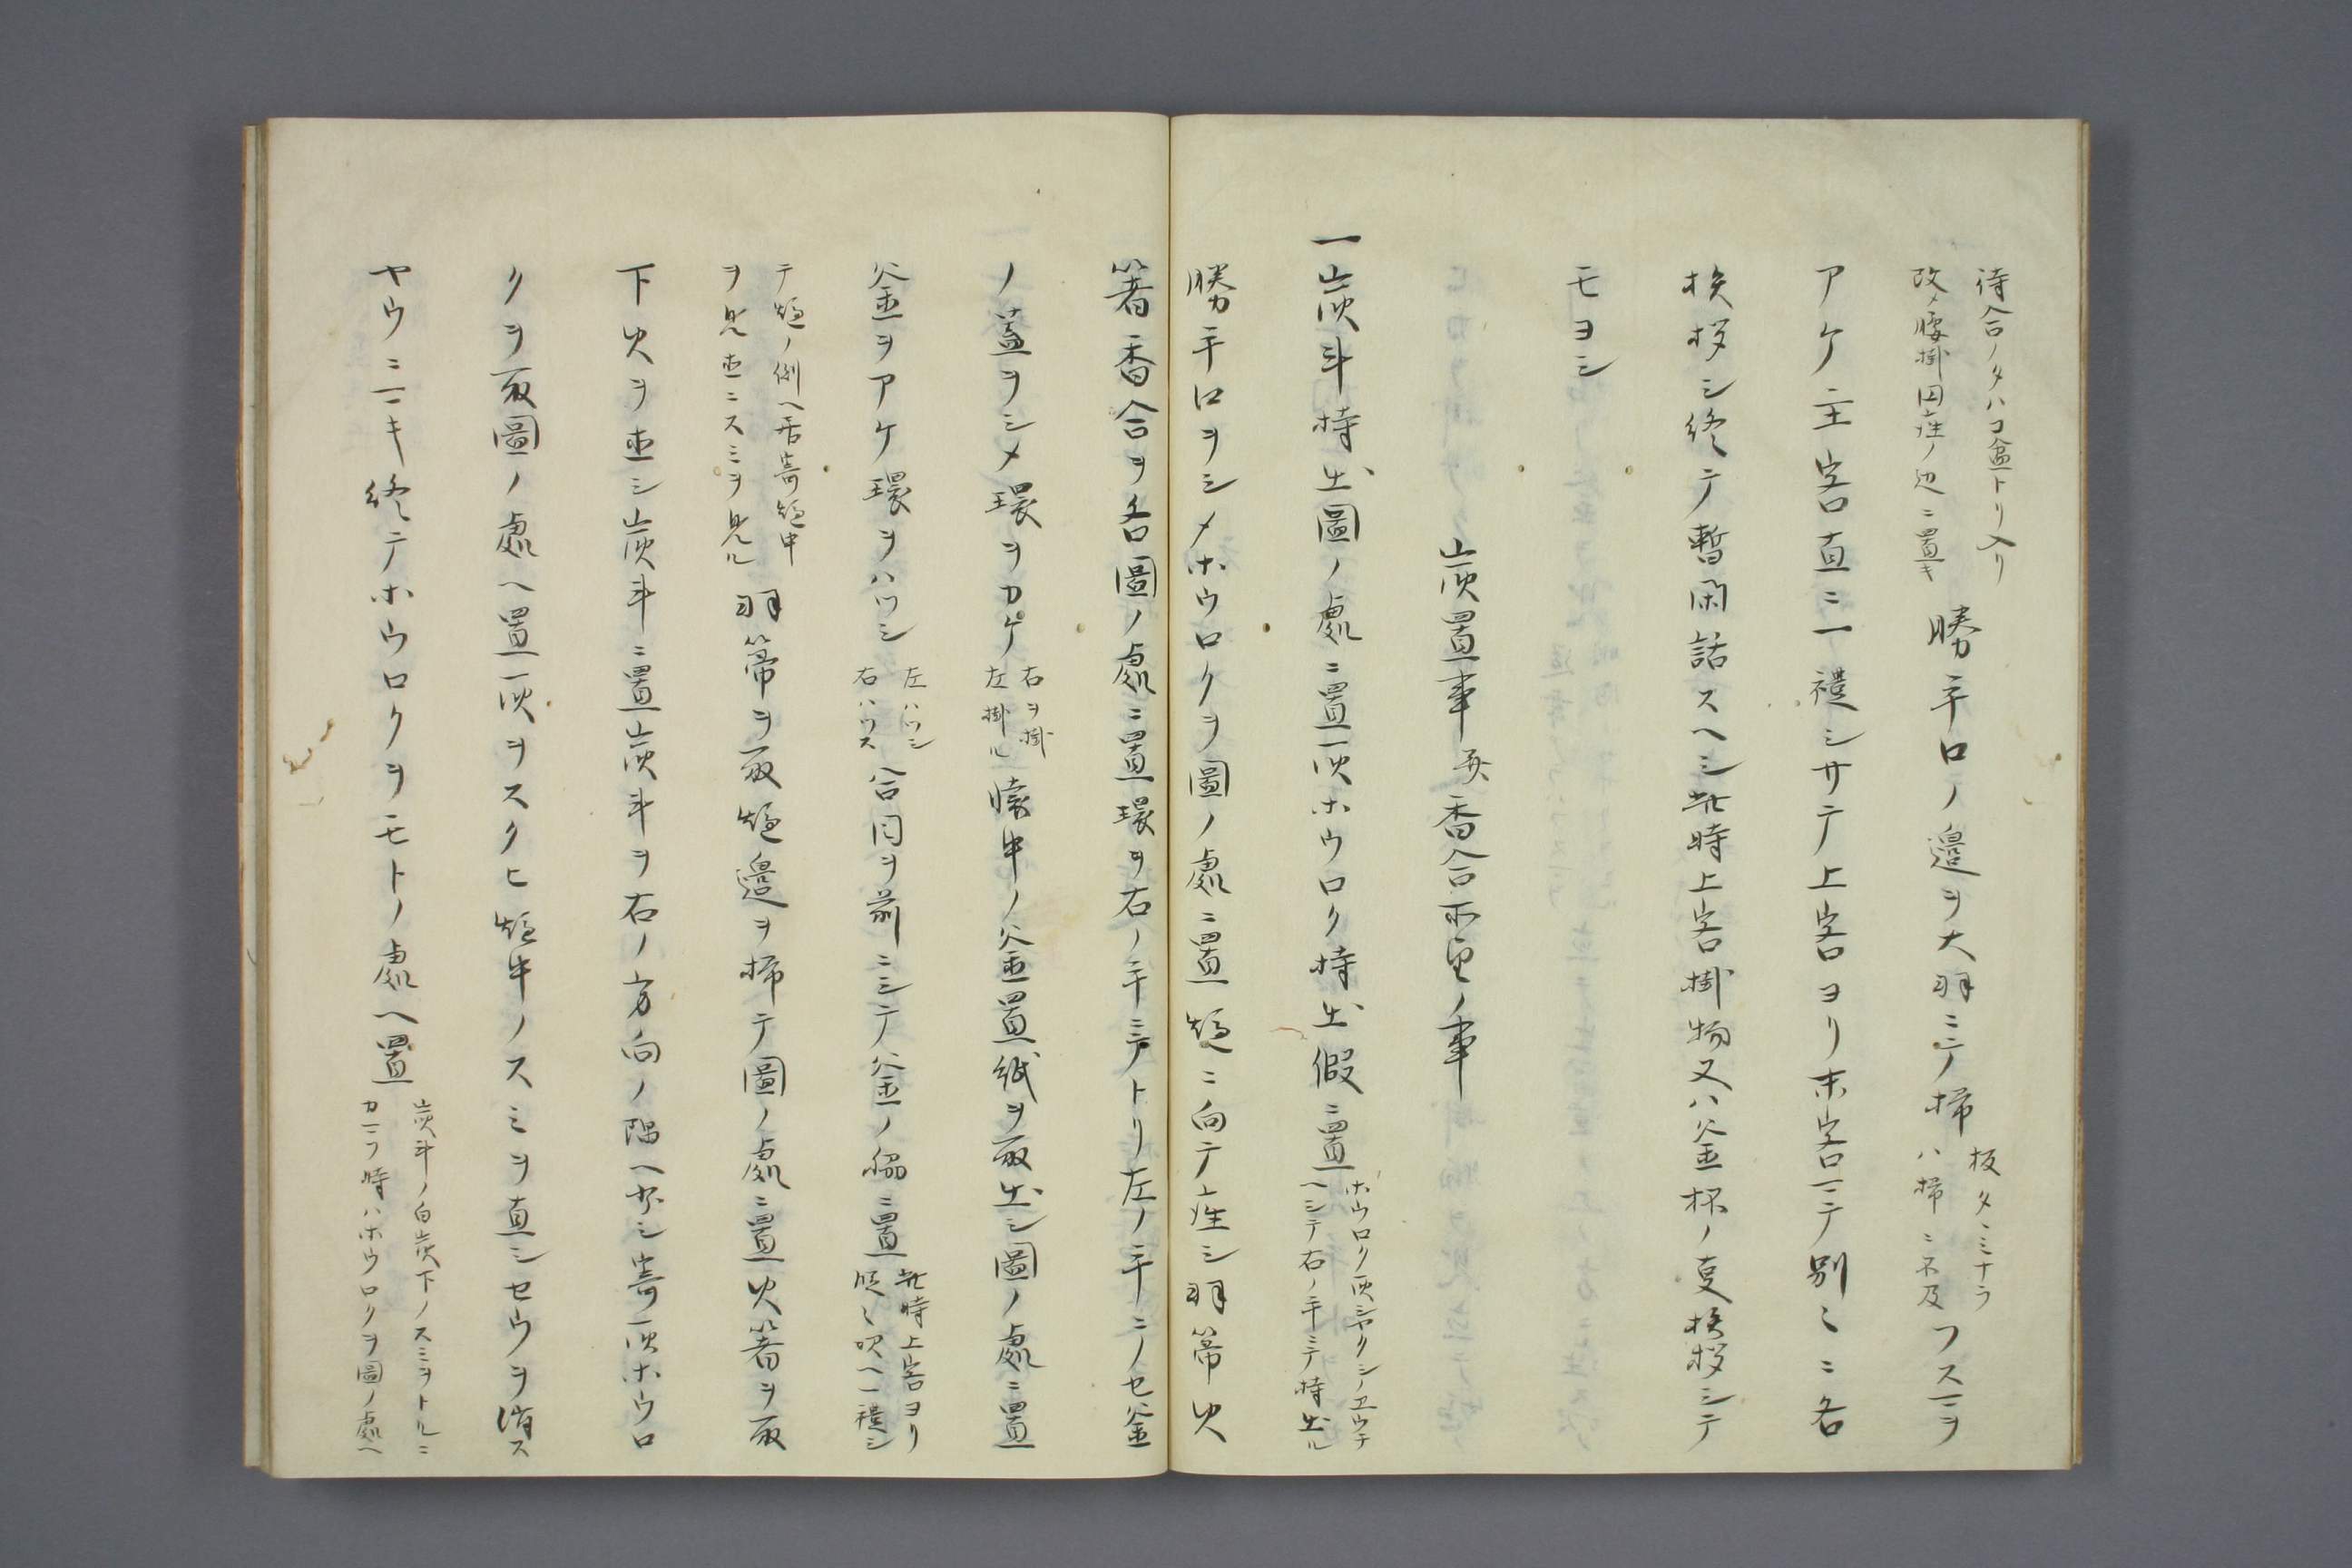 待合ノタハコ盆トリ入リ
改メ腰掛円座ノ辺ニ置キ
勝手口ノ邉ヲ大羽ニテ掃
板タヽミナラ
ハ掃ニ不及
フスマヲ
アケ主客直ニ一禮シサテ上客ヨリ末客マテ別〻ニ各
挨拶シ終テ暫閑話スヘシ此時上客掛物又ハ釜杯ノ㕝挨拶シテ
モヨシ
炭置事并香合所望ノ事
一炭斗持出圖ノ處ニ置灰ホウロク持出假ニ置
ホウロク灰シヤクシノヱウチ
ヘシテ右ノ手ニテ持出ル
勝手口ヲシメホウロクヲ圖ノ處ニ置爐ニ向テ座シ羽箒火
箸香合ヲ各圖ノ處ニ置環ヲ右ノ手ニテトリ左ノ手ニノセ釜
ノ蓋ヲシメ環ヲカケ
右ヲ掛
左掛ル
懐中ノ釜置紙ヲ取出シ圖ノ處ニ置
釜ヲアケ環ヲハツシ
左ハツシ
右ハツス
合目ヲ前ニシテ釜ノ脇ニ置
此時上客ヨリ
段〻次ヘ一禮シ
テ爐ノ側ヘ居寄爐中
ヲ見並ニスミヲ見ル
羽箒ヲ取爐邉ヲ掃テ圖ノ處ニ置火箸ヲ取
下火ヲ直シ炭斗ニ置炭斗ヲ右ノ方向ノ隅ヘヤシ寄灰ホウロ
クヲ取圖ノ處ヘ置灰ヲスクヒ爐中ノスミヲ直シセウヲ消ス
ヤウニマキ終テホウロクヲモトノ處ヘ置
炭斗ノ白炭下ノスミヲトルニ
カマフ時ハホウロクヲ圖ノ處ヘ